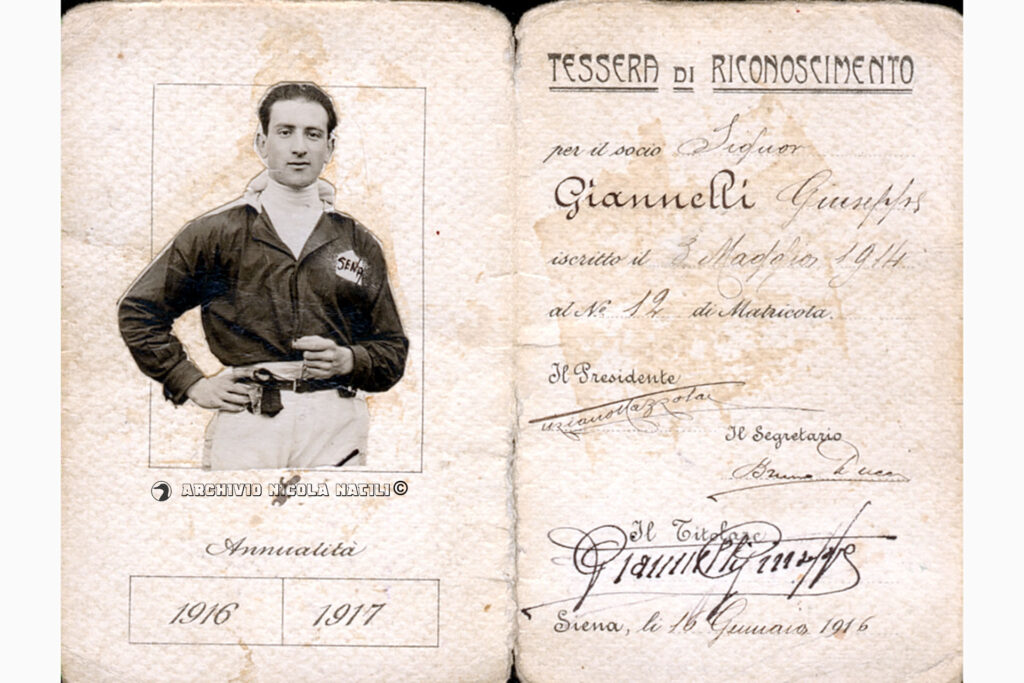 SENA
ARCHIVIO NICOLA NATILI©
Annualità
1916 1917
TESSERA DI RICONOSCIMENTO
per il socio Signor
Giannelli Giuseppe
iscritto il 3 Maggio 1914
al No 12 di Matricola.
Il Presidente
Il Segretario
Bruno
Il Titolare
Giannelli Giuseppe
Siena, li 16 Gennaio 1916